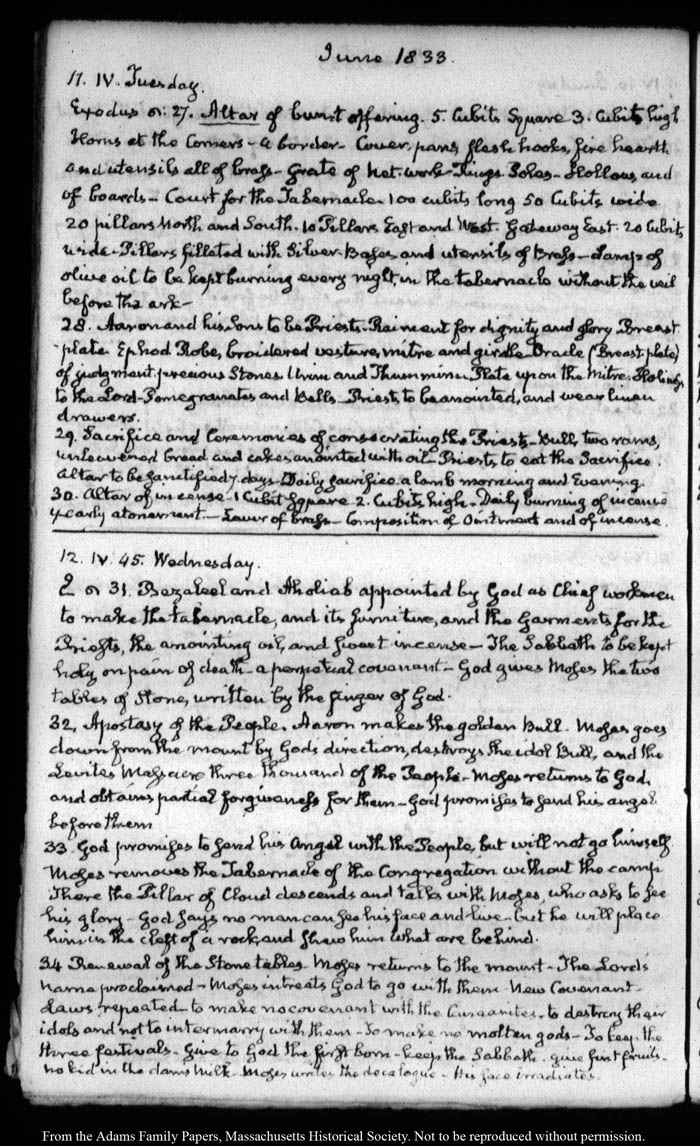 June 1833.
11. IV. Tuesday.
Exodus 27. Altar of burnt offering. 5. Cubits Square 3. Cubits high
Horns at the Corners - a border - Cover, pans, flesh hooks, fire hearth
and utensils all of brass - Grate of net-work - Rings. Poles - Hollow and
of boards - Court for the Tabernacle 100 cubits long 50 Cubits wide
20 pillars North and South. 10 Pillars East and West. Gateway East. 20 Cubits
wide - Pillars filleted with Silver. Bases and utensils of Brass - Lamp of
olive oil to be kept burning every night in the tabernacle without the veil
before the ark -
28. Aaron and his Sons to be Priests. Raiment for dignity and glory Breast
plate Ephod Robe, broidered vesture, mitre and girdle. Oracle (Breast-plate)
of judgment, precious Stones Urim and Thummim. Plate upon the Mitre. Holiness
to the Lord - Pomegranates and Bells. Priests to be anointed, and wear linen
drawers.
29. Sacrifice and Ceremonies of consecrating the Priests - Bull, two rams,
unleavened bread and cakes anointed with oil - Priests to eat the Sacrifice.
Altar to be Sanctified 7. days - Daily sacrifice a lamb morning and Evening.
30. Altar of incense - 1 Cubit Square 2. Cubits high - Daily burning of incense
yearly atonement - Laver of brass - Composition of Ointment and of incense.
12. IV. 45. Wednesday.
31. Bezaleel and Aholiab appointed by God as Chief workmen
to make the tabernacle, and its furniture, and the Garments for the
Priests, the anointing oil, and sweet incense - The Sabbath to be kept
holy on pain of death - a perpetual covenant - God gives Moses the two
tables of Stone, written by the finger of God.
32. Apostasy of the People. Aaron makes the golden Bull. Moses goes
down from the mount by Gods direction, destroys the idol Bull, and the
Levites Massacre three thousand of the People - Moses returns to God,
and obtains partial forgiveness for them - God promises to send his angel
before them
33. God promises to send his Angel with the People, but will not go himself
Moses removes the Tabernacle of the Congregation without the camp
There the Pillar of Cloud descends and talks with Moses, who asks to see
his glory - God says no man can see his face and live - but he will place
him in the cleft of a rock, and shew him what are behind.
34 Renewal of the Stone tables. Moses returns to the mount - The Lord's
name proclaimed - Moses intreats God to go with them. New Covenant -
Laws repeated - to make no covenant with the Canaanites - to destroy their
idols and not to intermarry with them - To make no molten gods - To keep the
three festivals - Give to God the first born - keep the Sabbath. give first fruits -
no kid in the dams milk - Moses writes the decalogue - His face irradiates.
From the Adams Family Papers, Massachusetts Historical Society. Not to be reproduced without permission.